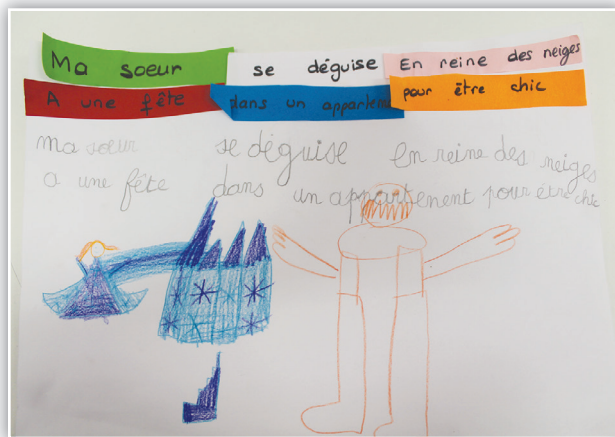 Ma soeur se déguise En reine des neiges
A une fête dans un appartem pour être chic
ma soeur se déguise en reine des neiges
a une fête dans un appartement pour être chic